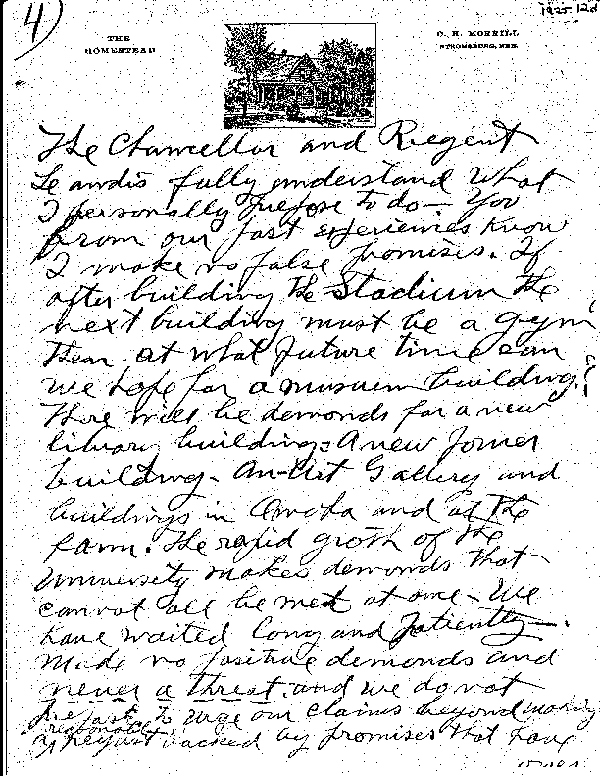 4)
1925 12d
THE
HOMESTEAD
C. H. MORRILL
STROMSBURG, NEB.
The Chancellor and Riegent
Le andis fully understand what
I personally prepose to do — You
from our past experiences know
I make no false promises. If
after building the Stadium the
next building must be a gym
then at what future time can
we hope for a museum building?
There will be demonds for a new
library building: A new Joiner
building - An Art Gallery and
buildings in Omaha and at the
farm. The rapid groth of the
University makes demonds that
cannot all be met at once - We
have waited long and patiently —.
Made no positive demonds and
never a threat. and we do not
to urge our claims beyond making
reasonable
request backed by promises that have